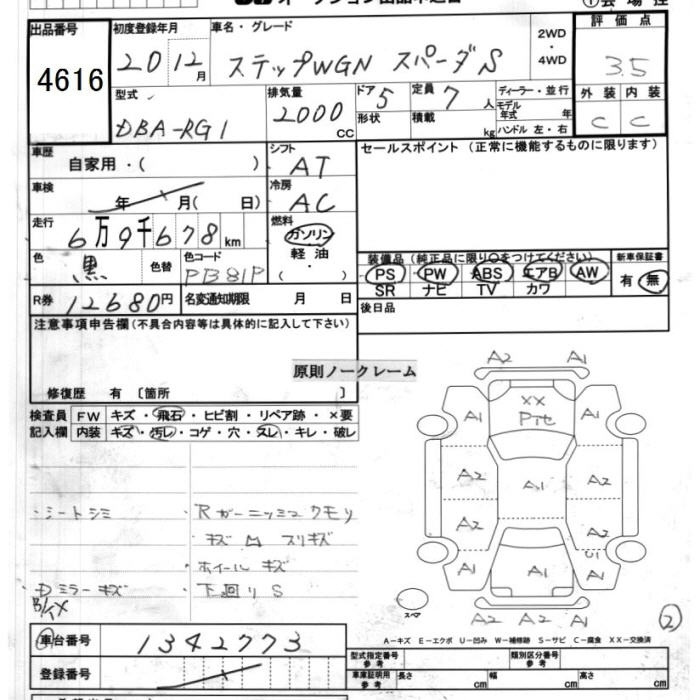 出品番号 初度登録年月 車名・グレード 2WD ・ 4WD 評価点
4616 20 12月 ステップWGN スパーダS 3.5
型式 排気量 ドア 定員 ディーラー・並行 外装 内装
DBA-RG1 2000cc 5 7人 モデル年式 年 C C
形状 積載 kg ハンドル 左・右
車歴 シフト セールスポイント (正常に機能するものに限ります)
自家用・( ) AT
車検 冷房
年 月( 日) AC
走行 燃料
6万9千678km ガソリン
色 色替 色コード 軽油
黒 PB81P ・( )
装備品 (純正品に限り○をつけてください) 新車保証書
PS PW ABS エアB AW 有 無
SR ナビ TV カワ
R券 12680円 名変通知期限 月 日 後日品
注意事項申告欄(不具合内容等は具体的に記入して下さい)
原則ノークレーム
修復歴 有 〔箇所 〕
検査員 FW キズ・飛石・ヒビ割・リペア跡・×要
記入欄 内装 キズ・汚レ・コゲ・穴・スレ・キレ・破レ
・シートシミ ・Rガーニッシュクモリ
キズ スリキズ
ホイールキズ
・Dミラーキズ ・下回りS
A2 A1
XX
A1 Pイセ A1
A2 A1 A2
A2 A2
U1
A1 A1 A1
A2 A2 A2
スペア
②
A-キズ E-エクボ U-凹み W-補修跡 S-サビ C-腐食 XX-交換済
車台番号 1342773
登録番号
型式指定番号 参考 類別区分番号 参考
車庫証明用 参考 長さ cm 幅 cm 高さ cm